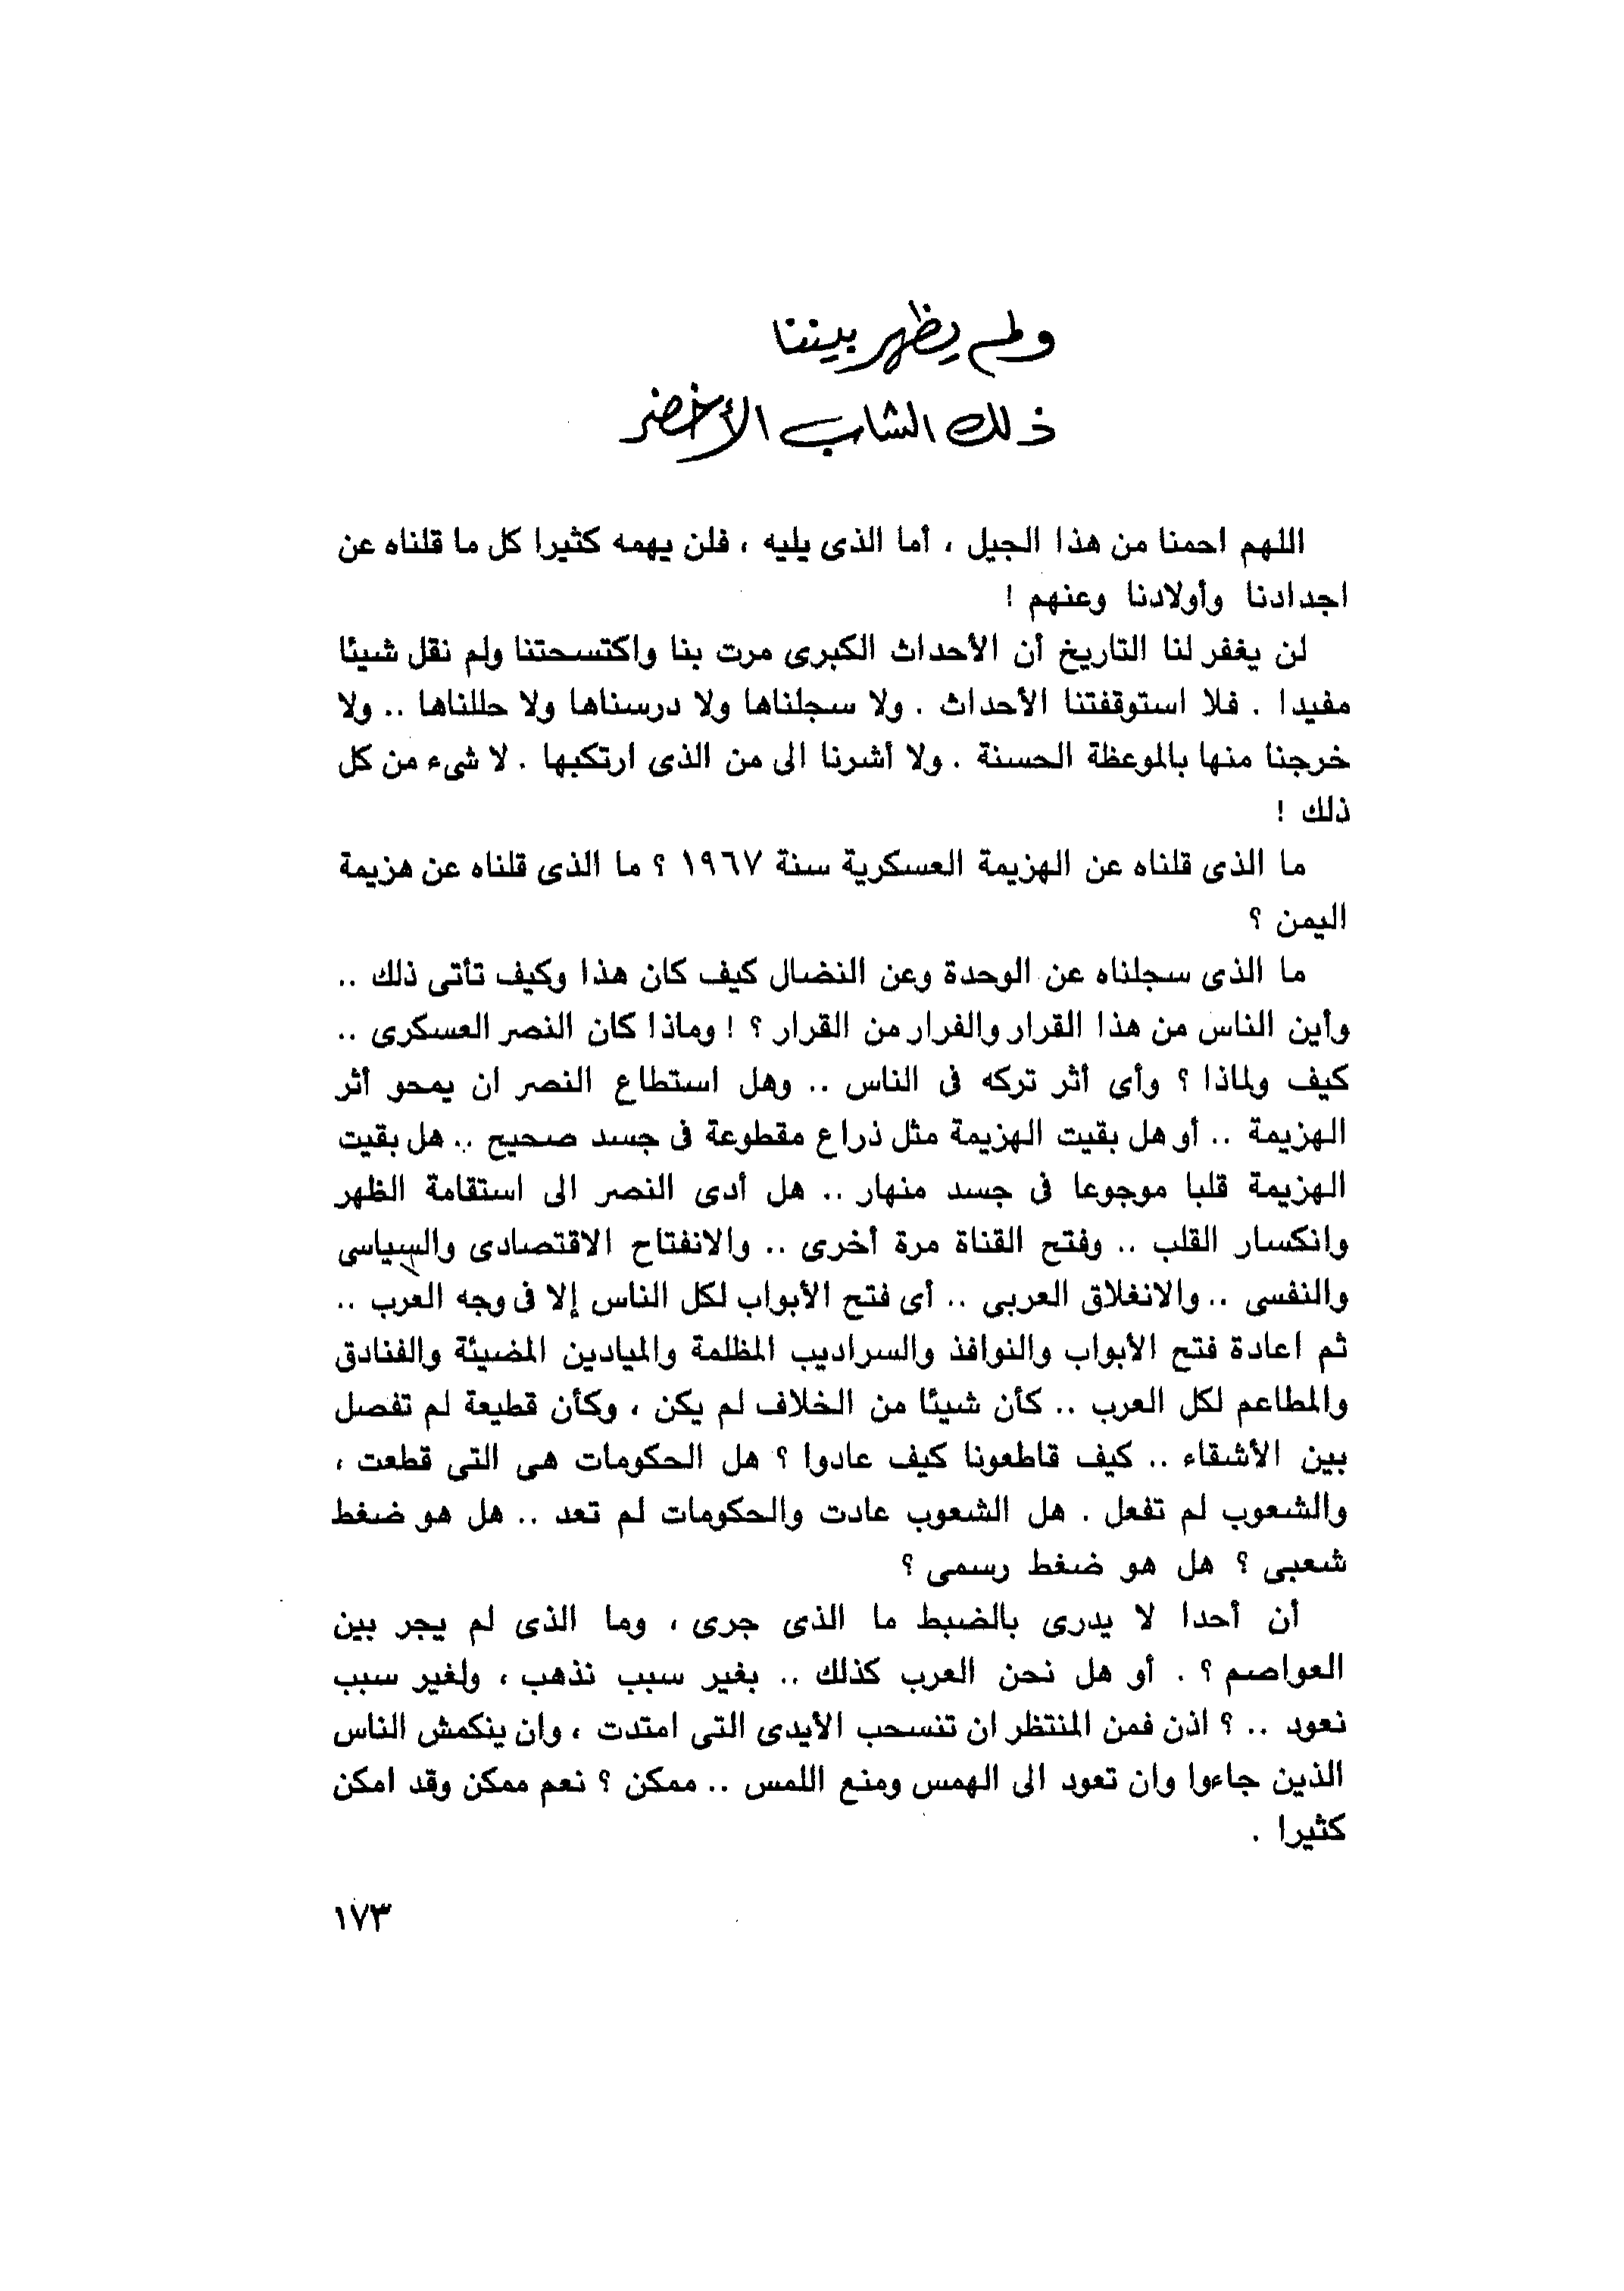 ولم يظهر بيننا
ذلك الشاب الأخضر
اللهم احمنا من هذا الجيل ، أما الذى يليه ، فلن يهمه كثيرا كل ما قلناه عن
اجدادنا وأولادنا وعنهم !
لن يغفر لنا التاريخ أن الأحداث الكبرى مرت بنا واكتسحتنا ولم نقل شيئا
مفيدا . فلا استوقفتنا الأحداث . ولا سجلناها ولا درسناها ولا حللناها .. ولا
خرجنا منها بالموعظة الحسنة . ولا أشرنا الى من الذى ارتكبها . لا شىء من كل
ذلك !
ما الذى قلناه عن الهزيمة العسكرية سنة ١٩٦٧ ؟ ما الذى قلناه عن هزيمة
اليمن ؟
ما الذى سجلناه عن الوحدة وعن النضال كيف كان هذا وكيف تأتى ذلك ..
وأين الناس من هذا القرار والفرار من القرار ؟ ! وماذا كان النصر العسكرى ..
كيف ولماذا ؟ وأى أثر تركه فى الناس .. وهل استطاع النصر ان يمحو أثر
الهزيمة .. أو هل بقيت الهزيمة مثل ذراع مقطوعة فى جسد صحيح .. هل بقيت
الهزيمة قلبا موجوعا فى جسد منهار .. هل أدى النصر الى استقامة الظهر
وانكسار القلب .. وفتح القناة مرة أخرى .. والانفتاح الاقتصادى والسياسى
والنفسى .. والانغلاق العربى .. أى فتح الأبواب لكل الناس إلا فى وجه العرب ..
ثم اعادة فتح الأبواب والنوافذ والسراديب المظلمة والميادين المضيئة والفنادق
والمطاعم لكل العرب .. كأن شيئا من الخلاف لم يكن ، وكأن قطيعة لم تفصل
بين الأشقاء .. كيف قاطعونا كيف عادوا ؟ هل الحكومات هى التى قطعت ،
والشعوب لم تفعل . هل الشعوب عادت والحكومات لم تعد .. هل هو ضغط
شعبى ؟ هل هو ضغط رسمى ؟
أن أحدا لا يدرى بالضبط ما الذى جرى ، وما الذى لم يجر بين
العواصم ؟ . أو هل نحن العرب كذلك .. بغير سبب نذهب ، ولغير سبب
نعود .. ؟ اذن فمن المنتظر ان تنسحب الأيدى التى امتدت ، وان ينكمش الناس
الذين جاءوا وان تعود الى الهمس ومنع اللمس .. ممكن ؟ نعم ممكن وقد امكن
كثيرا .
١٧٣